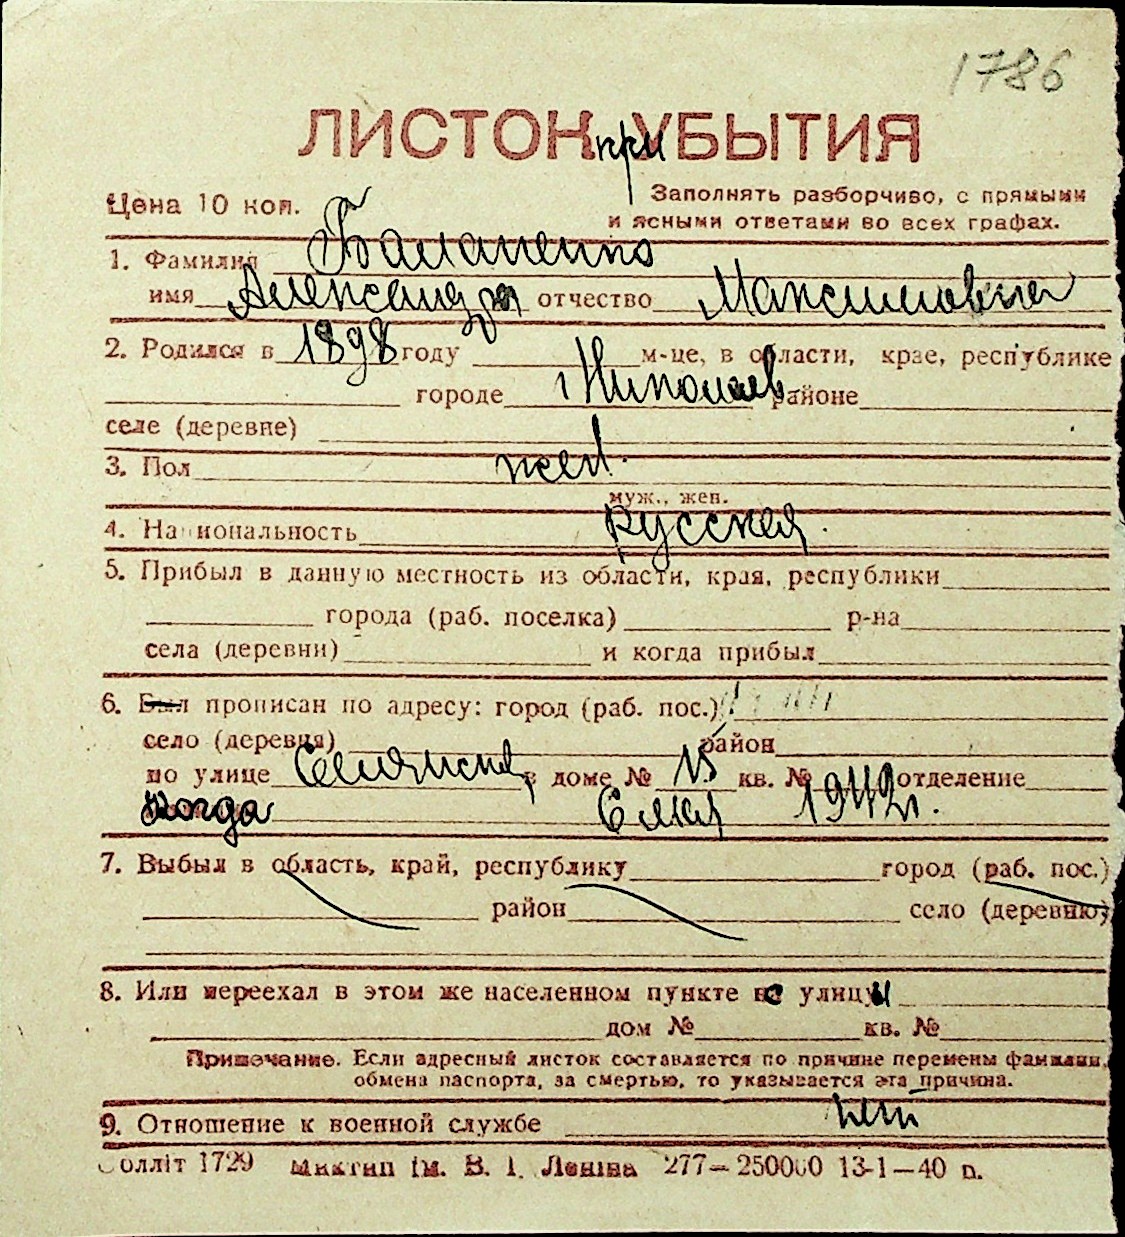 1786
ЛИСТОК при УБЫТИЯ
Цена 10 коп.
Заполнять разборчиво, с прямыми
и ясными ответами во всех графах.
1. Фамилия
имя Александра отчество Максимовна
2. Родился в 1898 году м-це, в области, крае, республике
городе Николаев районе
селе (деревне)
3. Пол жен.
муж., жен.
4. Национальность русская.
5. Прибыл в данную местность из области, края, республики
города (раб. поселка) р-на
села (деревни) и когда прибыл
6. Был прописан по адресу: город (раб. пос.)
село (деревня) район
по улице в доме № 15 кв. № отделение
когда 6 мая 1942г.
7. Выбыл в область, край, республику город (раб. пос.)
район село (деревню)
8. Или переехал в этом же населенном пункте с улицы
дом № кв. №
Примечание. Если адресный листок составляется по причине перемены фамилии,
обмена паспорта, за смертью, то указывается эта причина.
9. Отношение к военной службе нет
олліт 1729 Миктип ім. В. І. Леніна 277—250000 13-1—40 п.